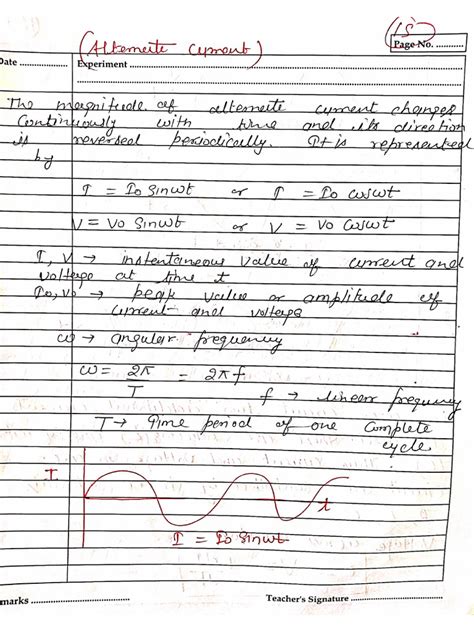 (Alternate Current)
(15)
Page No. ............
Date ...................
Experiment ...................................................
The magnitude of alternate current changes
Continuously with time and its direction
is reversed periodically. It is represented
by
I = Io Sinωt or I = Io cosωt
V = Vo Sinωt or V = Vo Cosωt
I, V → instantaneous value of current and
voltage at time t
Io, Vo → peak value or amplitude of
current and voltage
ω → angular frequency
ω = 2π/T = 2πf
f → linear frequency
T → Time period of one complete
cycle.
I
t
I = Io Sinωt
marks ...................................
Teacher's Signature ...................